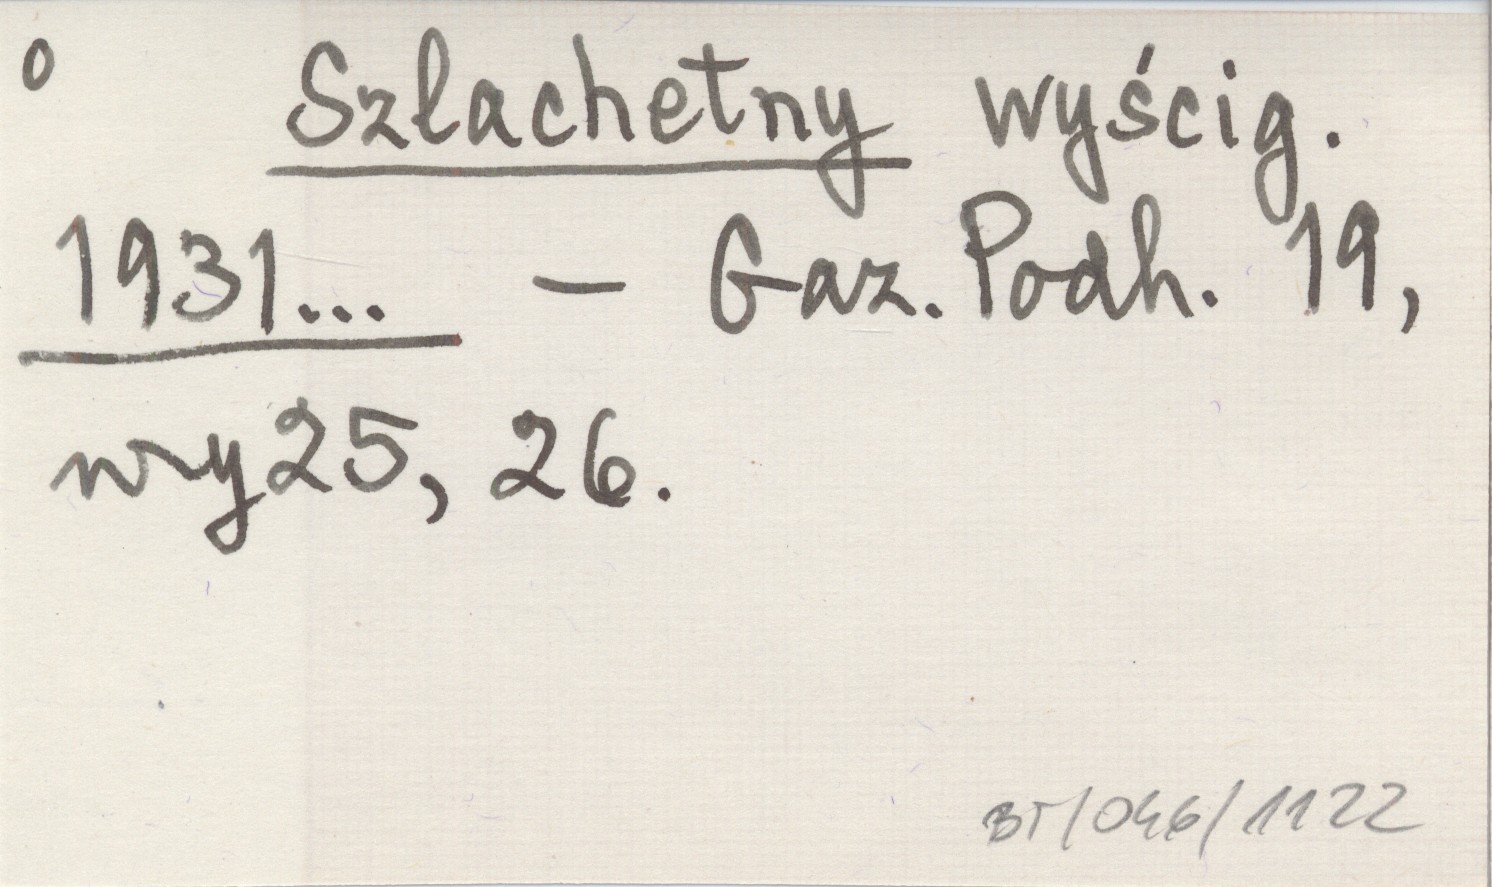 o
Szlachetny wyścig.
1931... – Gaz. Podh. 19,
nry 25, 26.
BT/046/1122